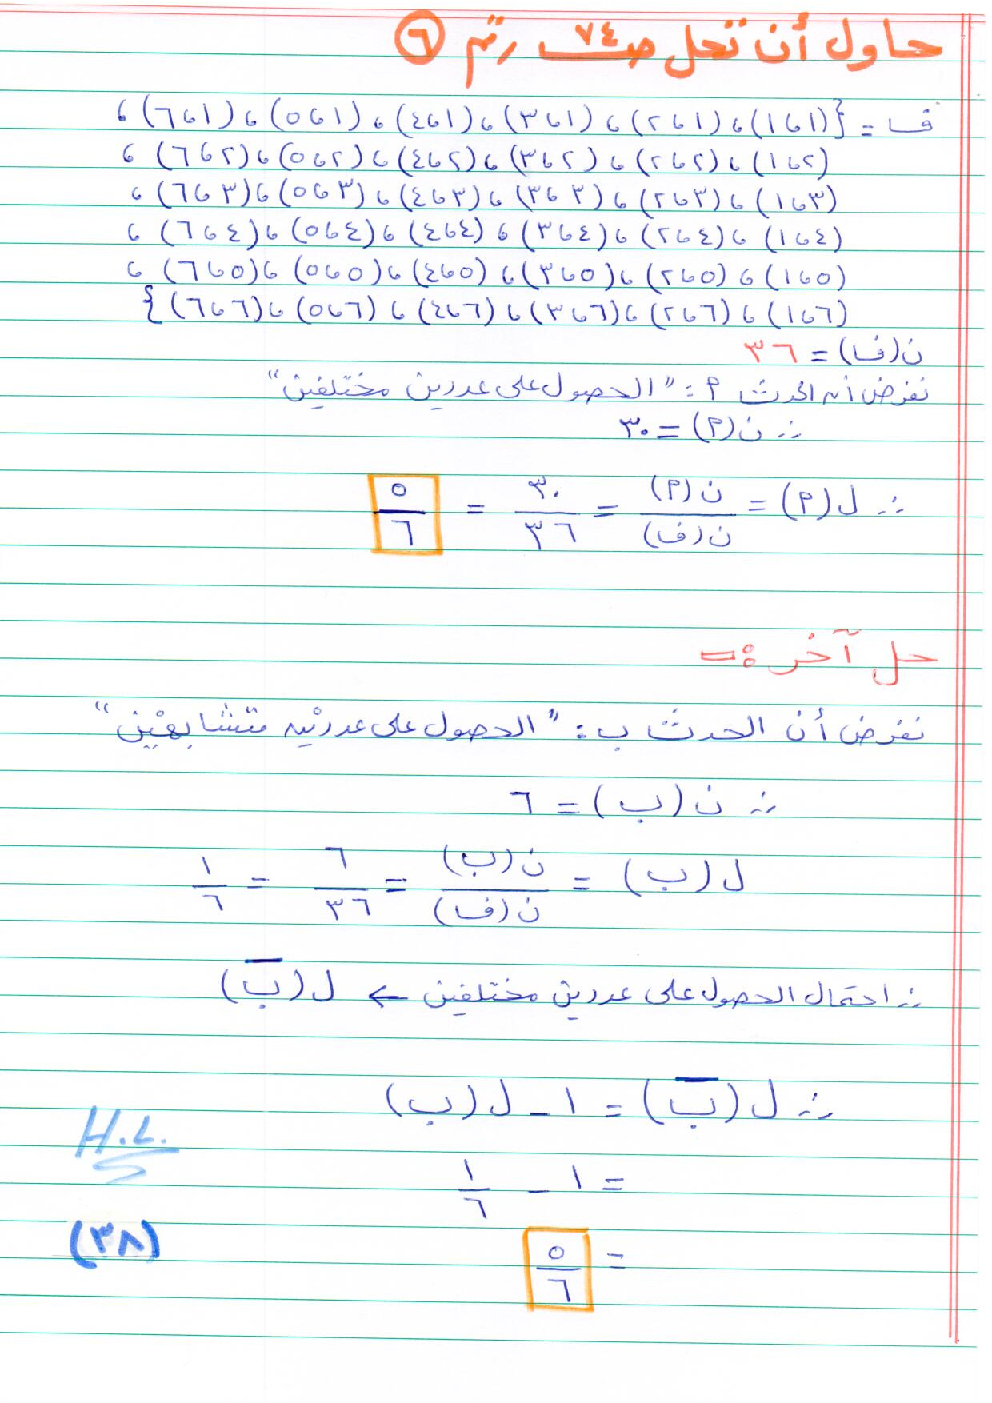 حاول أن تحل صـ ٧٤ رقم ٦
ف = {(١،١)،(١،٢)،(١،٣)،(١،٤)،(١،٥)،(١،٦)،
(٢،١)،(٢،٢)،(٢،٣)،(٢،٤)،(٢،٥)،(٢،٦)،
(٣،١)،(٣،٢)،(٣،٣)،(٣،٤)،(٣،٥)،(٣،٦)،
(٤،١)،(٤،٢)،(٤،٣)،(٤،٤)،(٤،٥)،(٤،٦)،
(٥،١)،(٥،٢)،(٥،٣)،(٥،٤)،(٥،٥)،(٥،٦)،
(٦،١)،(٦،٢)،(٦،٣)،(٦،٤)،(٦،٥)،(٦،٦)}
ن(ف) = ٣٦
نفرض أن الحدث م : "الحصول على عددين مختلفين"
∴ ن(م) = ٣٠
∴ ل(م) = ن(م)/ن(ف) = ٣٠/٣٦ = ٥/٦
حل آخر :=
نفرض أن الحدث ب : "الحصول على عددين متشابهين"
∴ ن(ب) = ٦
ل(ب) = ن(ب)/ن(ف) = ٦/٣٦ = ١/٦
∴ احتمال الحصول على عددين مختلفين ← ل(ب̅)
∴ ل(ب̅) = ١ - ل(ب)
= ١ - ١/٦
= ٥/٦
H.L.
(٣٨)